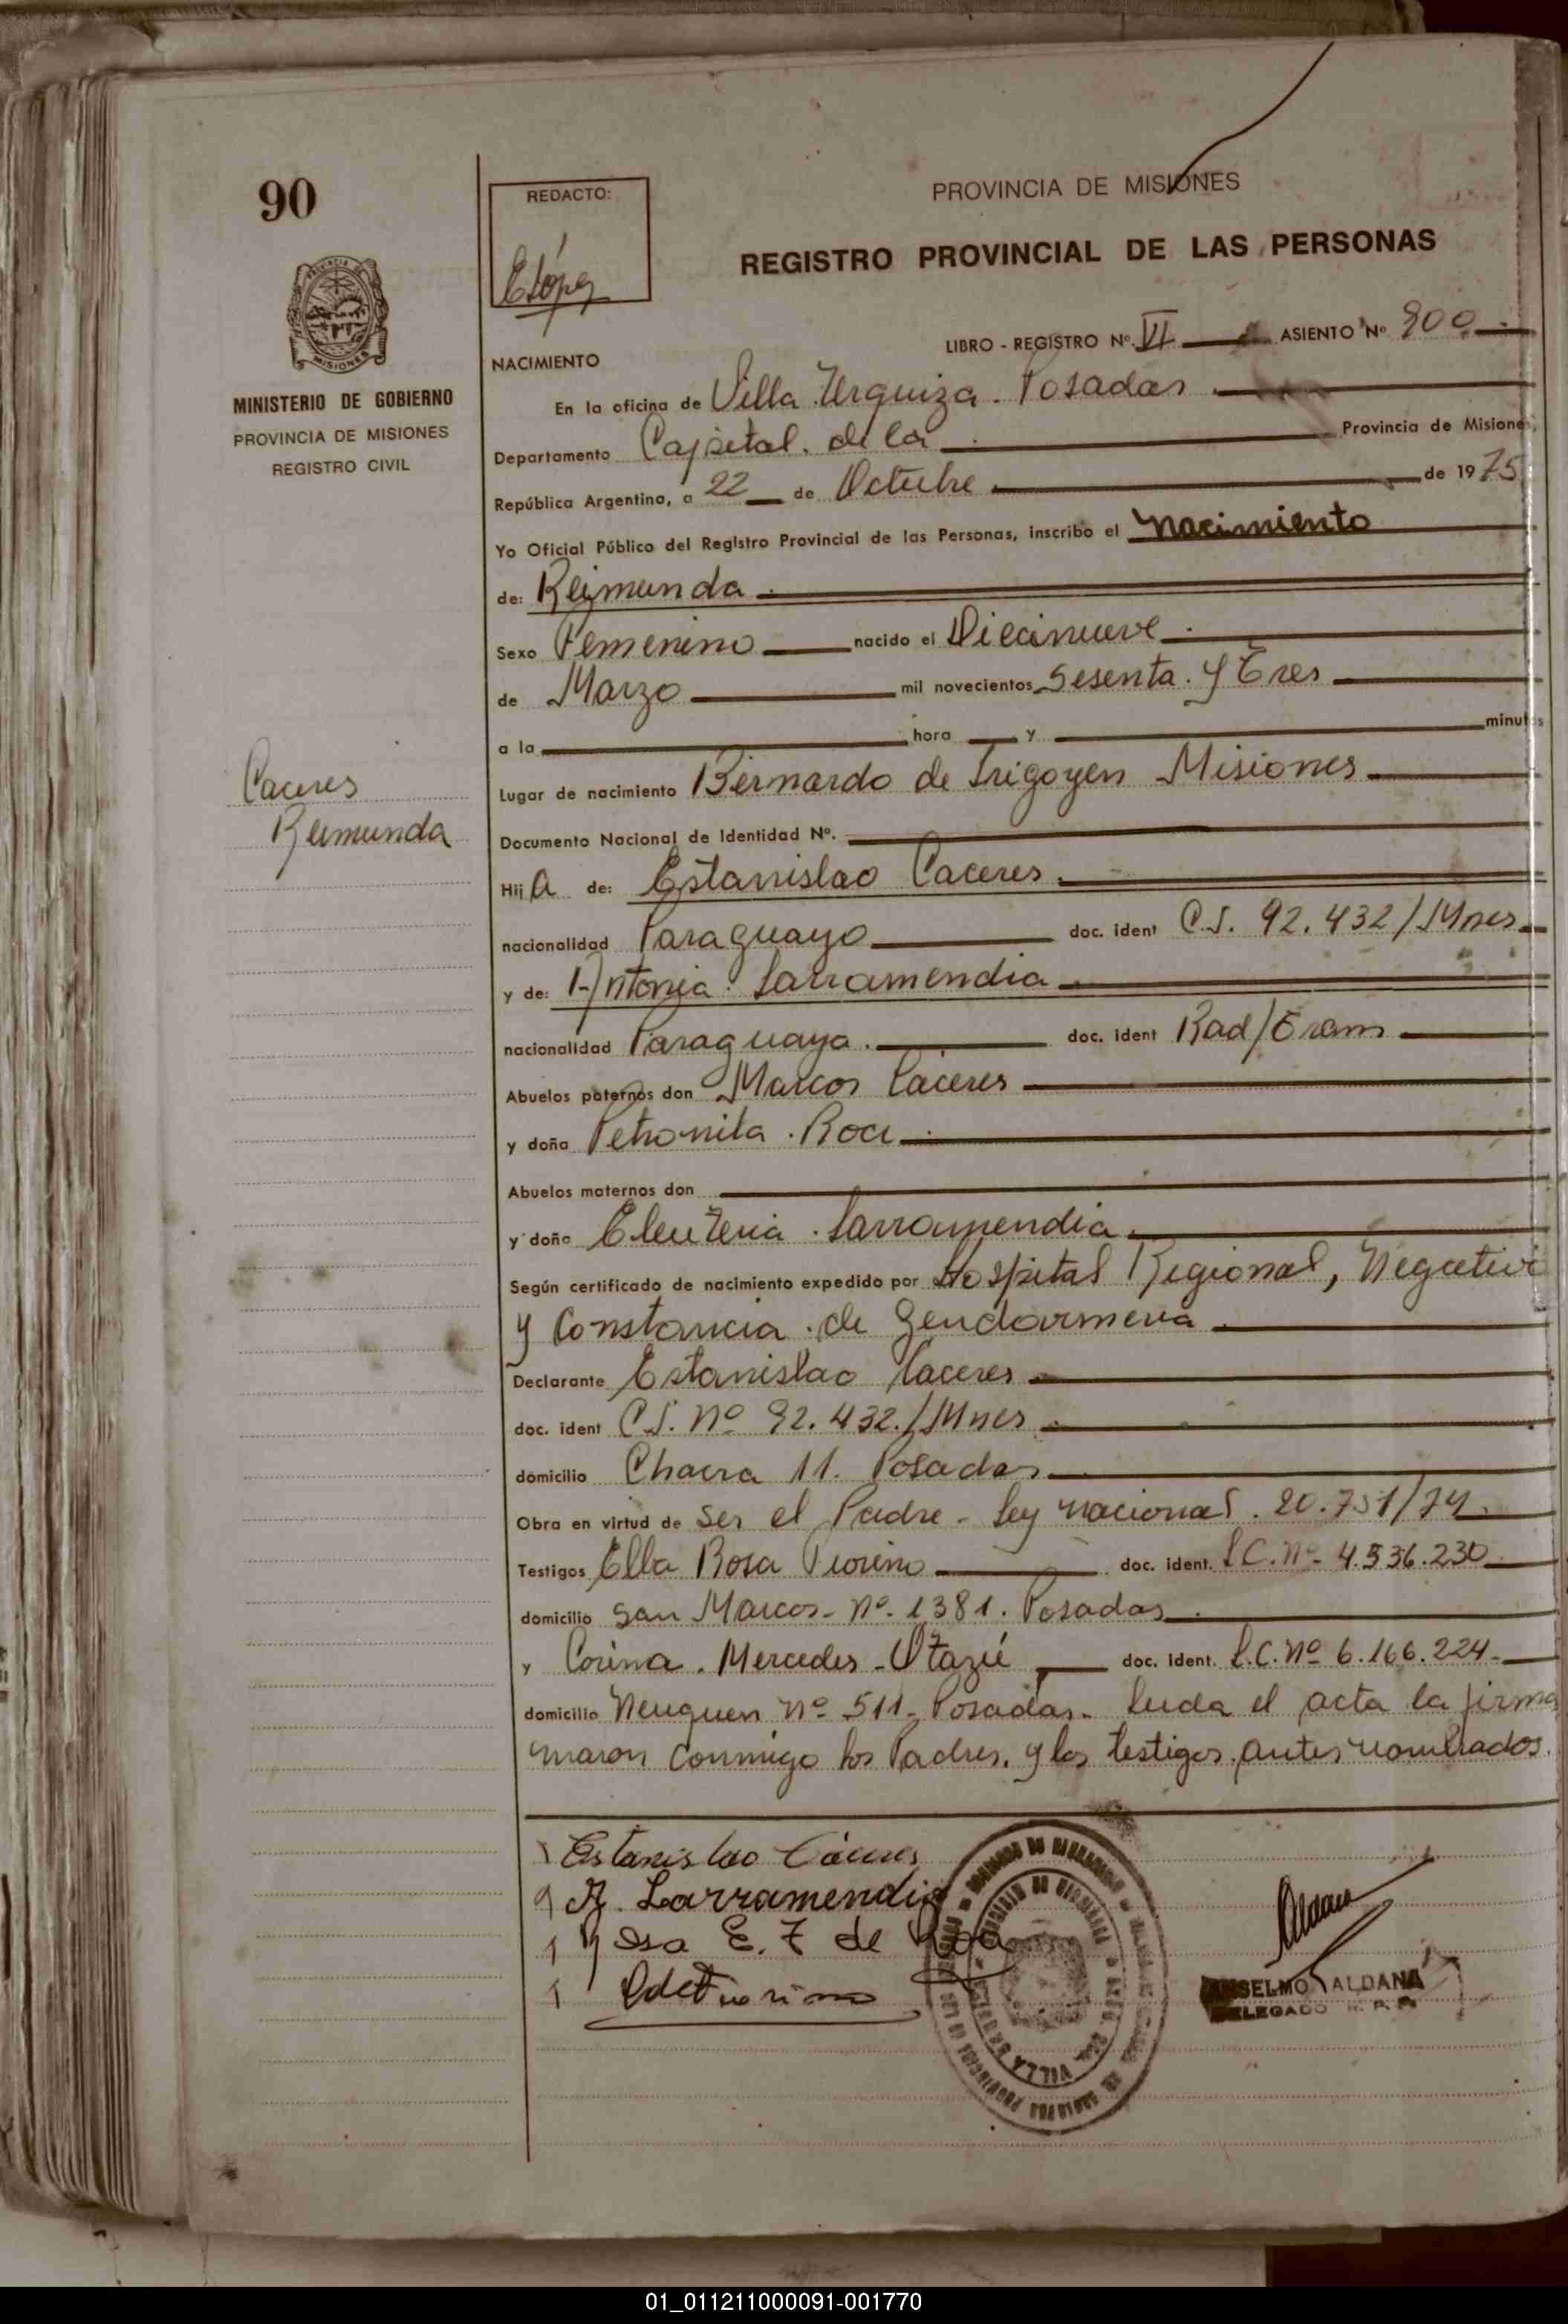 90
PROVINCIA DE
MISIONES
MINISTERIO DE GOBIERNO
PROVINCIA DE MISIONES
REGISTRO CIVIL
Caceres
Reimunda
REDACTO:
ELópez
PROVINCIA DE MISIONES
REGISTRO PROVINCIAL DE LAS PERSONAS
LIBRO - REGISTRO Nº. VI ASIENTO Nº 900
NACIMIENTO
En la oficina de Villa Urquiza. Posadas
Departamento Capital. de la Provincia de Misiones,
República Argentina, a 22 de Octubre de 1975
Yo Oficial Público del Registro Provincial de las Personas, inscribo el Nacimiento
de: Reimunda
Sexo Femenino nacido el Diecinueve
de Marzo mil novecientos Sesenta y Tres
a la hora y minutos
Lugar de nacimiento Bernardo de Irigoyen Misiones
Documento Nacional de Identidad Nº.
Hij a de: Estanislao Caceres
nacionalidad Paraguayo doc. ident C.I. 92.432/Mnes
y de: Antonia Larramendia
nacionalidad Paraguaya. doc. ident Rad/Tram
Abuelos paternos don Marcos Caceres
y doña Petronila. Roa
Abuelos maternos don
y doña Eleuteria Larramendia
Según certificado de nacimiento expedido por Hospital Regional, Negativo
y Constancia de Gendarmeria
Declarante Estanislao Caceres
doc. ident C.I. Nº 92.432./Mnes
domicilio Chacra 11. Posadas
Obra en virtud de ser el Padre - Ley nacional. 20.751/74.
Testigos Elba Rosa Fiorino doc. ident. L.C. Nº 4.536.230
domicilio San Marcos- Nº. 1381. Posadas
y Corina. Mercedes - Otazú doc. ident. L.C. Nº 6.166.224-
domicilio Neuquen Nº 511- Posadas- Leida el acta la firma
maron conmigo los Padres. y los testigos antes nombrados.
Estanislao Cáceres
A. Larramendia
E. F de Roa
VILLA
ANSELMO ALDANA
DELEGADO R. P. P.
01_011211000091-001770